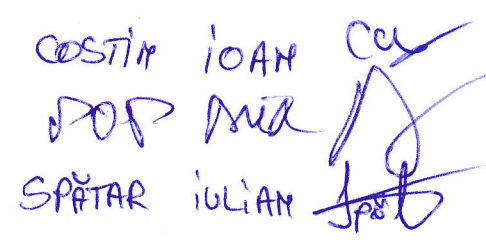 COSTIN IOAN
POP
SPĂTAR IULIAN